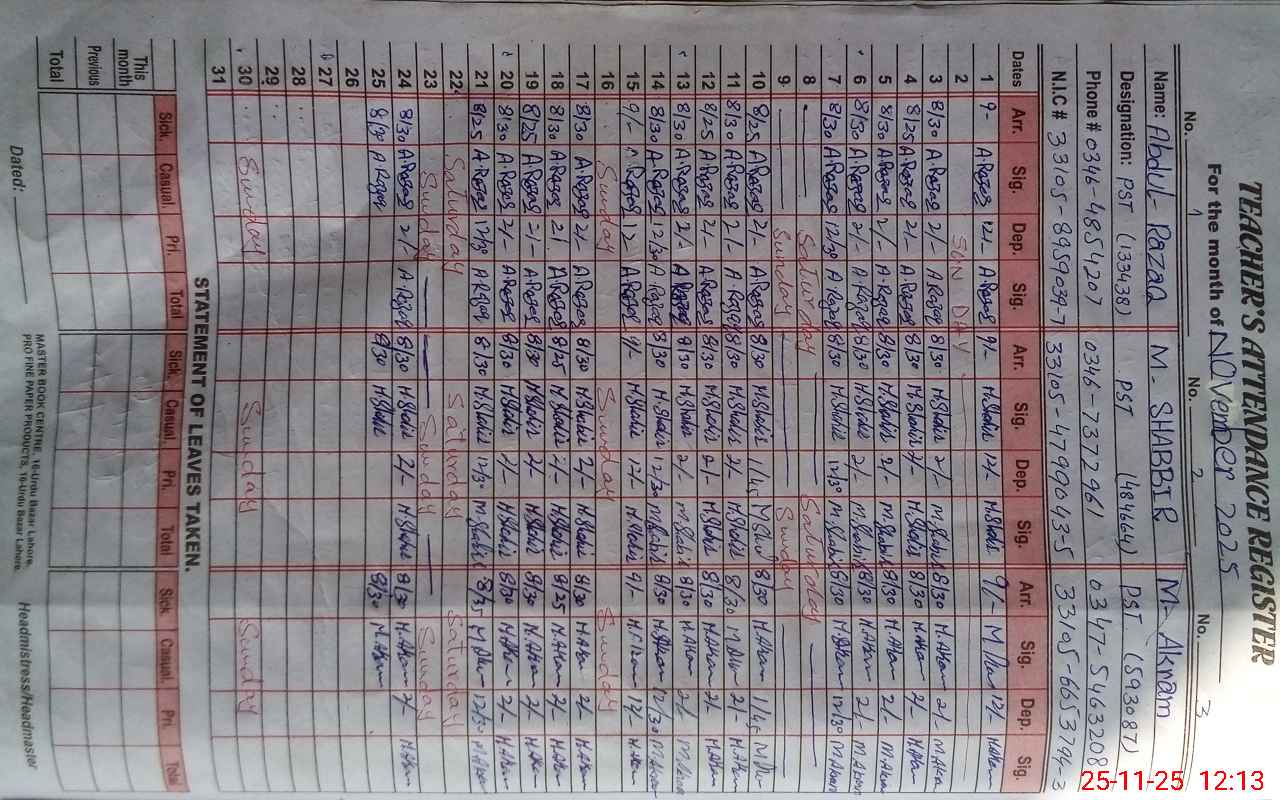 TEACHER'S ATTENDANCE REGISTER
For the month of November 2025
No. 1 No. 2 No. 3
Name: Abdul-Razaq M-SHABBIR M-Akram
Designation: PST (133438) PST (484664) PST (593087)
Phone # 0346-4854207 0346-7372961 0347-5463208
N.I.C # 33105-8959039-7 33105-4799043-5 33105-6653794-3
Dates Arr. Sig. Dep. Sig. Arr. Sig. Dep. Sig. Arr. Sig. Dep. Sig.
1 9- A.Razaq 12/- A.Razaq 9/- M.Shabir 12/- M.Shabir 9/- 12/- M.Akram
2 SUN DAY
3 8/30 A.Razaq 2/- A.Razaq 8/30 M.Shabir 2/- M.Shabir 8/30 M.Akram 2/- M.Akram
4 8/25 A.Razaq 2/- A.Razaq 8/30 M.Shabir 2/- M.Shabir 8/30 M.Akram 2/- M.Akram
5 8/30 A.Razaq 2/- A.Razaq 8/30 M.Shabir 2/- M.Shabir 8/30 M.Akram 2/- M.Akram
6 8/30 A.Razaq 2/- A.Razaq 8/30 M.Shabir 2/- M.Shabir 8/30 M.Akram 2/- M.Akram
7 8/30 A.Razaq 12/30 A.Razaq 8/30 M.Shabir 12/30 M.Shabir 8/30 M.Akram 12/30 M.Akram
8 Saturday Saturday
9 Sunday Sunday
10 8/25 A.Razaq 2/- A.Razaq 8/30 M.Shabir 1/45 8/30 M.Akram 1/45
11 8/30 A.Razaq 2/- A.Razaq 8/30 M.Shabir 2/- M.Shabir 8/30 2/ M.Akram
12 8/25 A.Razaq 2/- A.Razaq 8/30 M.Shabir 2/- M.Shabir 8/30 M.Akram 2/- M.Akram
13 8/30 A.Razaq 2/- A.Razaq 8/30 M.Shabir 2/- M.Shabir 8/30 M.Akram 2/- M.Akram
14 8/30 A.Razaq 12/30 A.Razaq 8/30 M.Shabir 12/30 M.Shabir 8/30 M.Akram 12/30 M.Akram
15 9/- A.Razaq 12- A.Razaq 9/- M.Shabir 12/- M.Shabir 9/- M.Akram 12/- M.Akram
16 Sunday Sunday Sunday
17 8/30 A.Razaq 2/- A.Razaq 8/30 M.Shabir 2/- M.Shabir 8/30 M.Akram 2/- M.Akram
18 8/30 A.Razaq 2/ A.Razaq 8/25 M.Shabir 2/- M.Shabir 8/25 M.Akram 2/- M.Akram
19 8/25 A.Razaq 2/- A.Razaq 8/30 M.Shabir 2/- M.Shabir 8/30 M.Akram 2/- M.Akram
20 8/30 A.Razaq 2/- A.Razaq 8/30 M.Shabir 2/- M.Shabir 8/30 M.Akram 2/- M.Akram
21 8/25 A.Razaq 12/30 A.Razaq 8/30 M.Shabir 12/30 M.Shabir 8/35 12/30 M.Akram
22 Saturday Saturday Saturday
23 Sunday Sunday Sunday
24 8/30 A.Razaq 2/- A.Razaq 8/30 M.Shabir 2/- M.Shabir 8/30 M.Akram 2/- M.Akram
25 8/30 A.Razaq 8/30 M.Shabir 8/30 M.Akram
26
27
28
29
30 Sunday Sunday Sunday
31
STATEMENT OF LEAVES TAKEN.
Sick. Casual. Pri. Total Sick. Casual. Pri. Total Sick Casual. Pri. Total
This month
Previous
Total
MASTER BOOK CENTRE, 16-Urdu Bazar Lahore.
PRO FINE PAPER PRODUCTS, 16-Urdu Bazar Lahore.
Dated: Headmistress/Headmaster
25-11-25 12:13